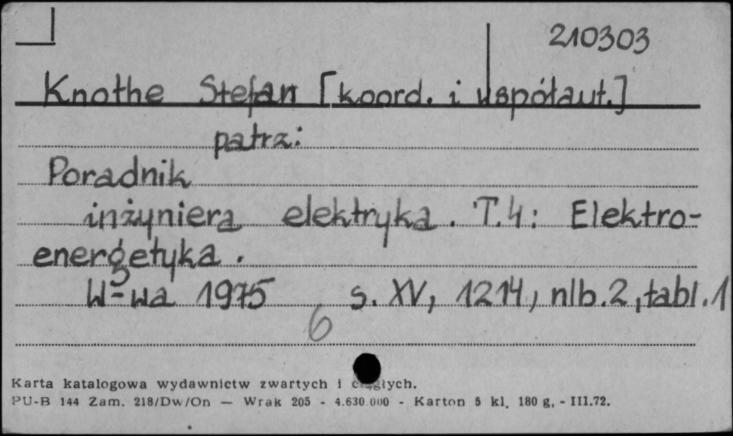 210303
Knothe Stefan [koord. i współaut.]
patrz:
Poradnik
inżyniera elektryka. T.4: Elektro-
energetyka.
W-wa 1975 s. XV, 1214, nlb.2, tabl.1
6
Karta katalogowa wydawnictw zwartych i ciągłych.
PU-B 144 Zam. 218/Dw/On — Wrak 205 - 4.630.000 - Karton 5 kl. 180 g. - III.72.